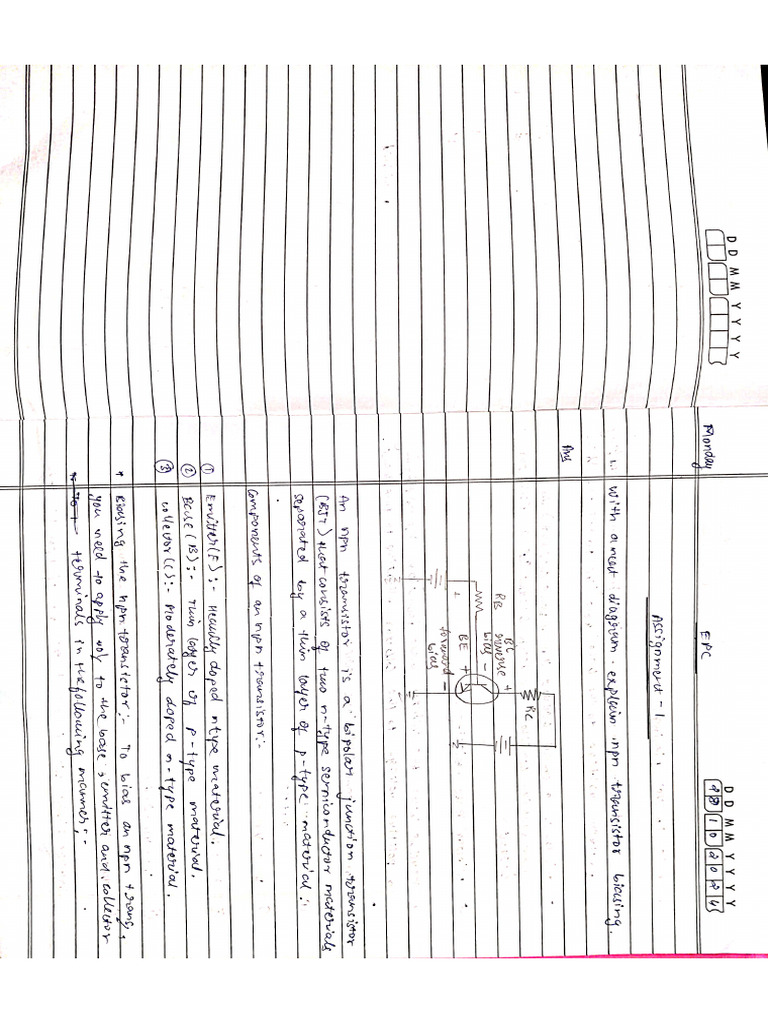 D D M M Y Y Y Y
Monday
EPC
D D M M Y Y Y Y
Assignment - 1
1. With a neat diagram explain npn transistor biasing.
Ans
RC
BC
reverse +
bias -
RB
BE +
forward -
bias
An npn transistor is a bipolar junction transistor
(BJT) that consists of two n-type semiconductor materials
separated by a thin layer of p-type material :-
Components of an npn transistor:-
① Emitter(E) :- Heavily doped ntype material.
② Base(B):- Thin layer of p-type material.
③ Collector(C):- Moderately doped n-type material.
* Biasing the npn transistor:- To bias an npn trans,
you need to apply vol to the base, emitter and collector
terminals in the following manner;-